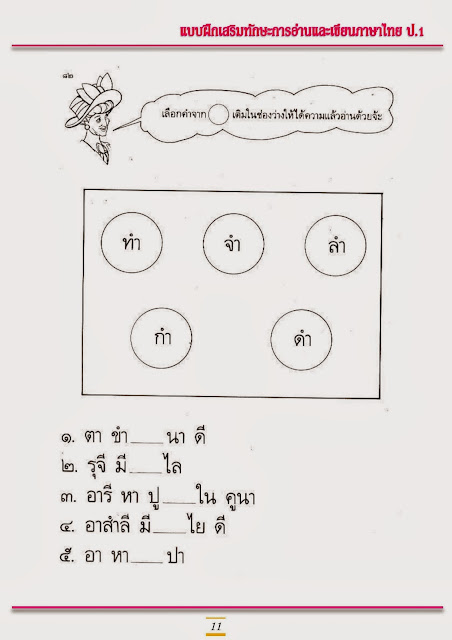 แบบฝึกเสริมทักษะการอ่านและเขียนภาษาไทย ป.1
๘๒
เลือกคำจาก เติมในช่องว่างให้ได้ความแล้วอ่านด้วยจ้ะ
ทำ จำ ลำ
กำ ดำ
๑. ตา ขำ____นา ดี
๒. รุจี มี____ไล
๓. อารี หา ปู____ใน คูนา
๔. อาสำลี มี____ไย ดี
๕. อา หา____ปา
11